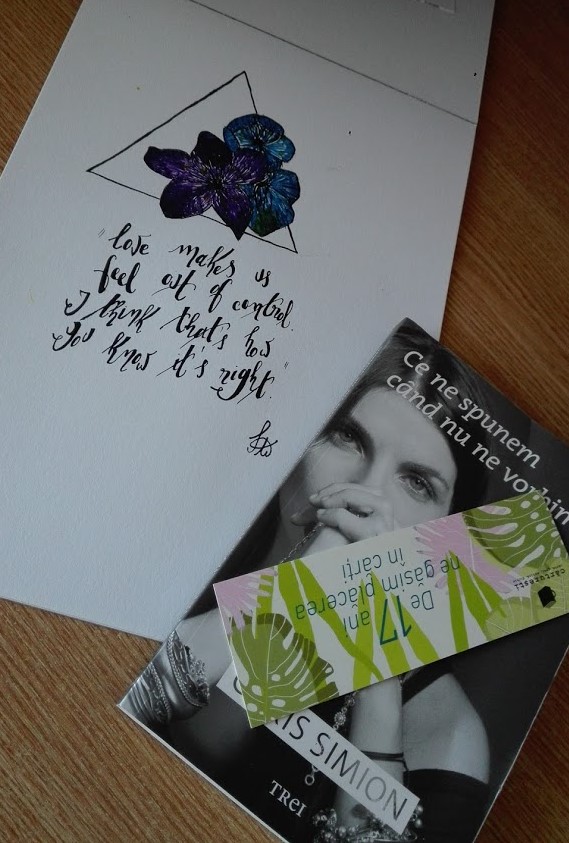 "love makes us
feel out of control.
I think that's how
You know it's right."
Ce ne spunem
când nu ne vorbim
De 17 ani
ne găsim plăcerea
în cărți
cărturești
SIMION
TREI